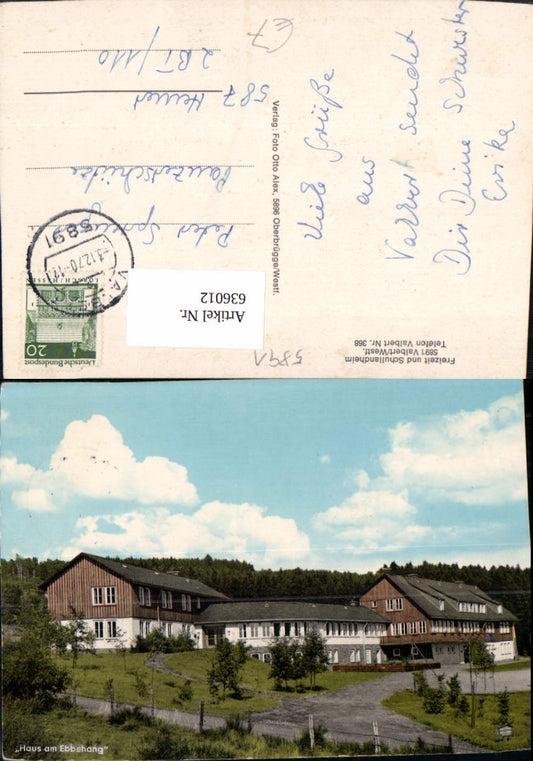 Viele Grüße
aus
Valbert sendet
Dir Deine Schwester
Erika
Peter
Panzerschütze
587 Hemer
2 BT/110
Verlag: Foto Otto Alex, 5896 Oberbrügge/Westf.
Freizeit und Schullandheim
5891 Valbert/Westf.
Telefon Valbert Nr. 368
5891
5891
-3.12.70-
LORSCH/HESSEN
20
Deutsche Bundespost
Artikel Nr.
636012
„Haus am Ebbehang"